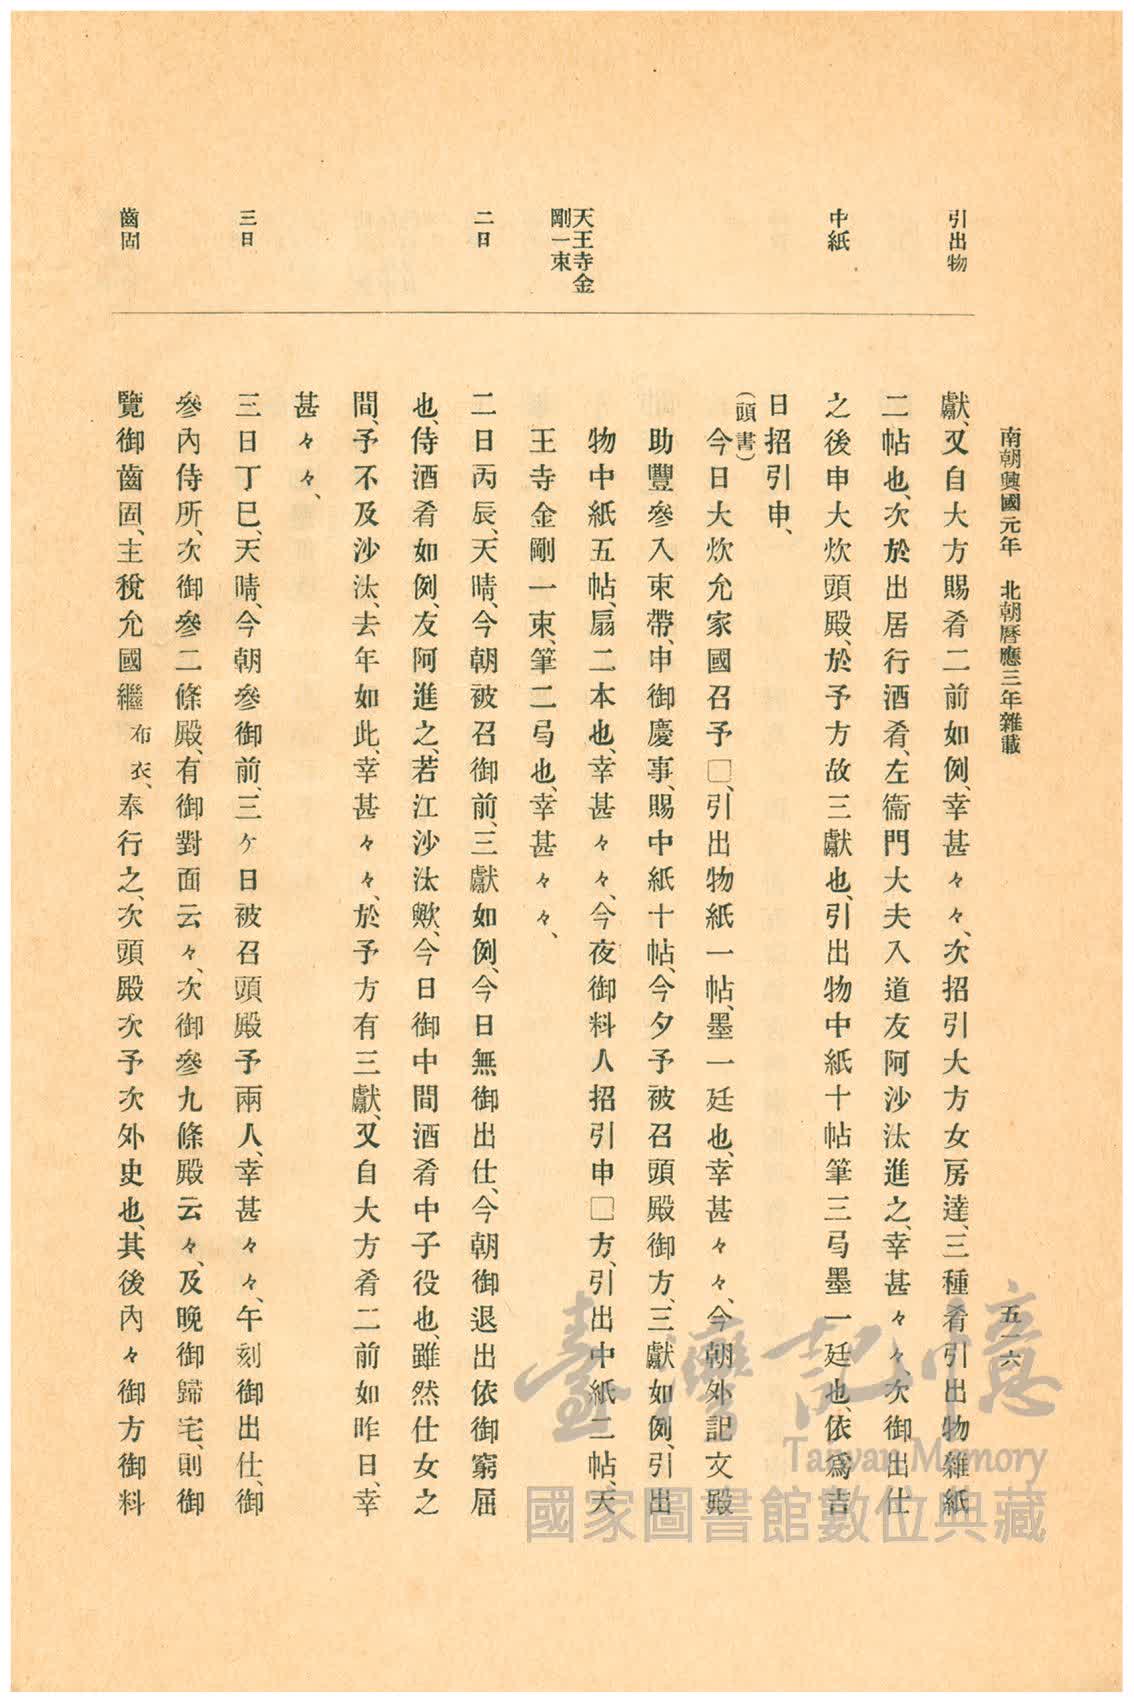 南朝興國元年　北朝曆應三年雜載　五一六
引出物
中紙
天王寺金
剛一束
二日
三日
齒固
獻、又自大方賜肴二前如例、幸甚々々、次招引大方女房達、三種肴引出物雜紙
二帖也、次於出居行酒肴、左衞門大夫入道友阿沙汰進之、幸甚々々、次御出仕
之後申大炊頭殿、於予方故三獻也、引出物中紙十帖筆三弓墨一廷也、依爲吉
日招引申、
（頭書）
今日大炊允家國召予□、引出物紙一帖、墨一廷也、幸甚々々、今朝外記文殿
助豐參入束帶、申御慶事、賜中紙十帖、今夕予被召頭殿御方、三獻如例、引出
物中紙五帖、扇二本也、幸甚々々、今夜御料人招引申□方、引出中紙二帖、天
王寺金剛一束、筆二弓也、幸甚々々、
二日丙辰、天晴、今朝被召御前、三獻如例、今日無御出仕、今朝御退出依御窮屈
也、侍酒肴如例、友阿進之、若江沙汰歟、今日御中間酒肴中子役也、雖然仕女之
間、予不及沙汰、去年如此、幸甚々々、於予方有三獻、又自大方肴二前如昨日、幸
甚々々、
三日丁巳、天晴、今朝參御前、三ヶ日被召頭殿予兩人、幸甚々々、午刻御出仕、御
參內侍所、次御參二條殿、有御對面云々、次御參九條殿云々、及晚御歸宅、則御
覽御齒固、主稅允國繼布衣、奉行之、次頭殿次予次外史也、其後內々御方御料
臺灣記憶
Taiwan Memory
國家圖書館數位典藏